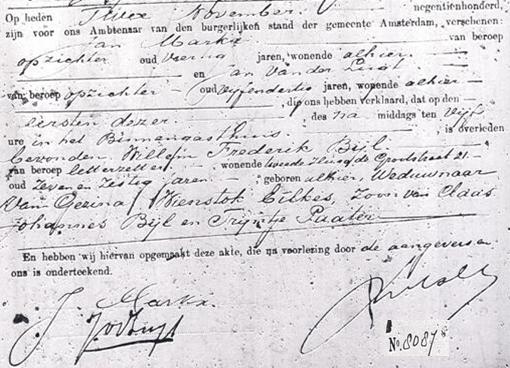 Op heden Twee November negentienhonderd,
zijn voor ons Ambtenaar van den burgerlijken stand der gemeente Amsterdam, verschenen:
Jan Markx van beroep
opzichter oud veertig jaren, wonende alhier
en Jan van der Lugt
van beroep opzichter oud vijfendertig jaren, wonende alhier
, die ons hebben verklaard, dat op den
eersten dezer des na middags ten vijf
ure in het Binnengasthuis is overleden
Willem Frederik Bijl
van beroep letterzetter wonende tweede 21
oud Zeven en Zestig jaren geboren alhier, Weduwnaar
van Gerina Bienstok Eilkes, Zoon van Claas
Johannes Bijl en Trijntje Paater
En hebben wij hiervan opgemaakt deze akte, die na voorlezing door de aangevers en
ons is onderteekend.
J. Markx
No. 8087